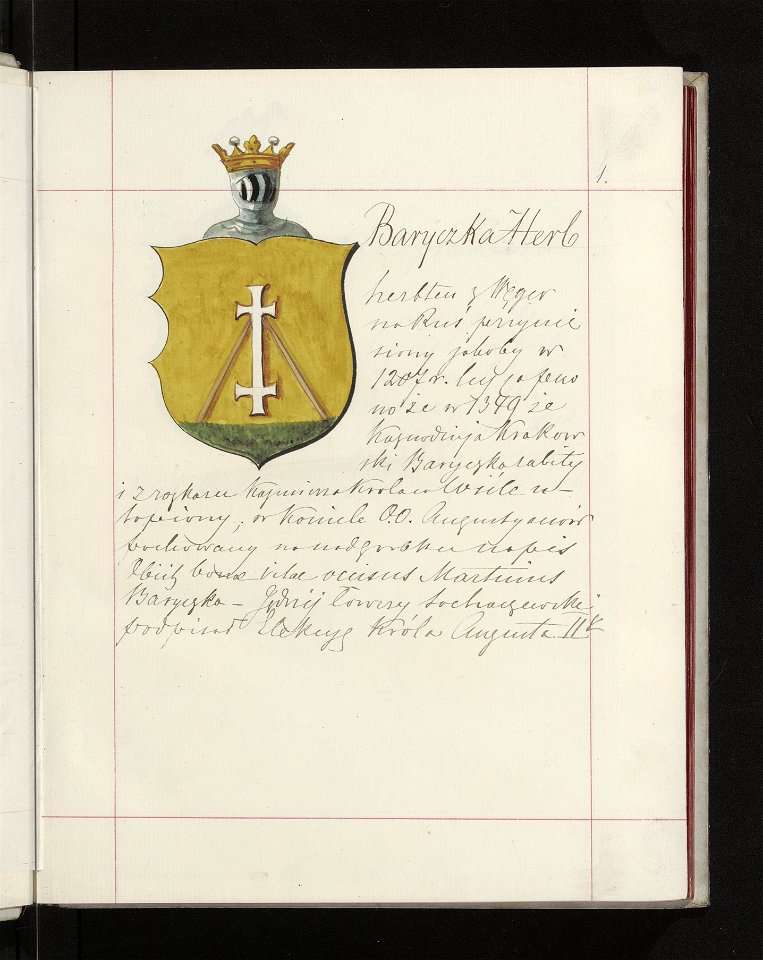 1.
Baryczka Herb
herb ten z Węger
na Ruś przynie
siony jakoby w
1207 r.
no że w 1349 że
Kaznodzieja Krakow
ski Baryczka zabity
i z rozkazu Kazimierza Króla w Wiśle u-
topiony, w kościele O.O. Augustyanów
pochowany na nadgrobku napis
Obiit bonae vitae occisus Martinus
Baryczka – Jędrzéj Łowczy Sochaczewski
podpisał Elekcyę Króla Augusta II